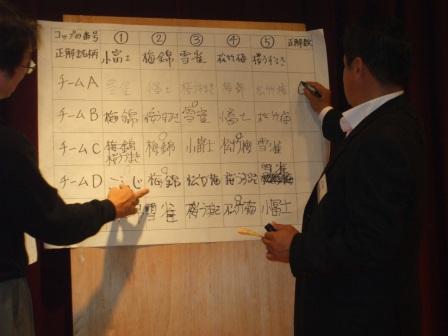 コップの番号 ① ② ③ ④ ⑤ 正解数
正解銘柄 小富士 梅錦 雪雀 松竹梅 桜うづまき
チームA 雪雀
チームB 梅錦 桜うづまき 雪雀 小富士 松竹梅
チームC 梅錦 梅錦 小富士 松竹梅 雪雀
桜うづまき
チームD 梅錦 松竹梅 桜うづまき 雪雀
雪雀 桜うづまき 松竹梅 小富士